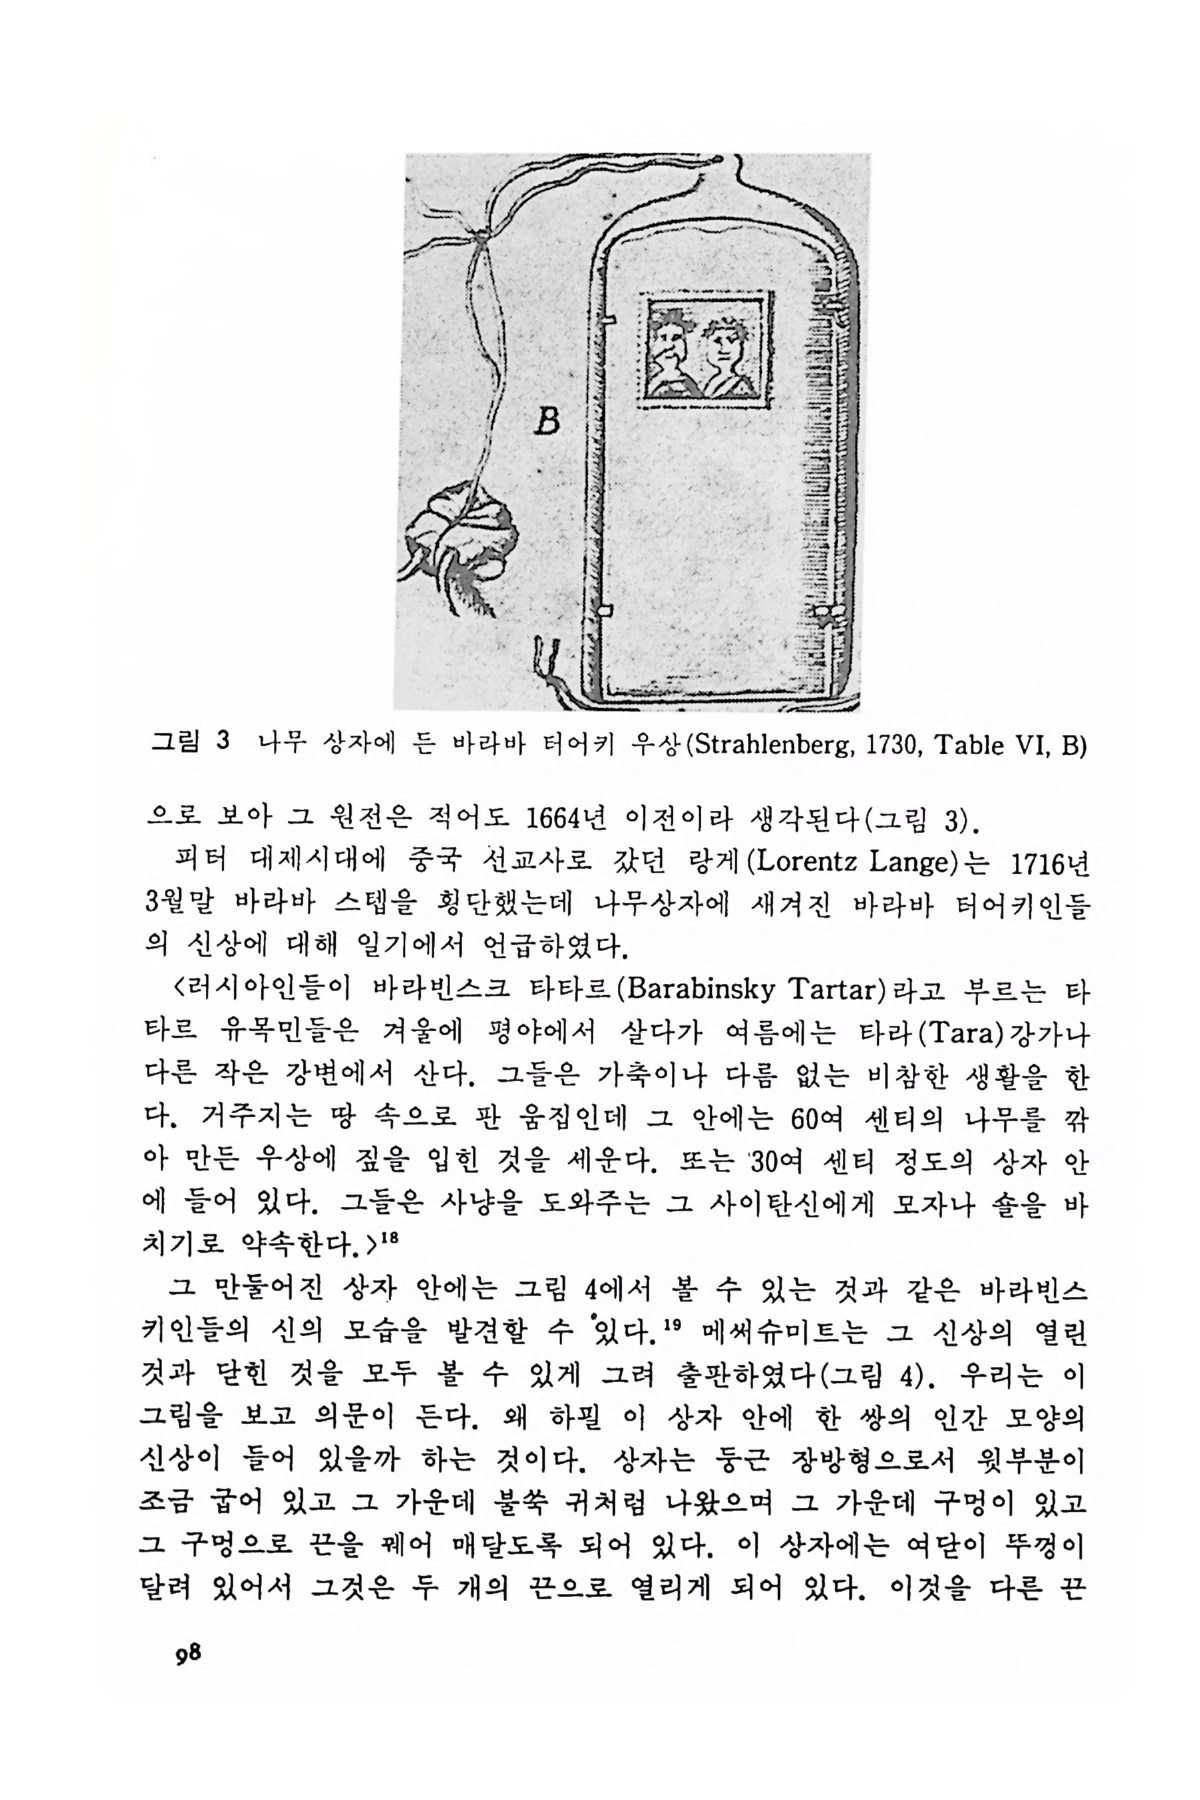 B
그림 3 나무 상자에 든 바라바 터어키 우상(Strahlenberg, 1730, Table VI, B)
으로 보아 그 원전은 적어도 1664년 이전이라 생각된다(그림 3).
피터 대제시대에 중국 선교사로 갔던 랑게(Lorentz Lange)는 1716년
3월말 바라바 스텝을 횡단했는데 나무상자에 새겨진 바라바 터어키인들
의 신상에 대해 일기에서 언급하였다.
<러시아인들이 바라빈스크 타타르(Barabinsky Tartar)라고 부르는 타
타르 유목민들은 겨울에 평야에서 살다가 여름에는 타라(Tara)강가나
다른 작은 강변에서 산다. 그들은 가축이나 다름 없는 비참한 생활을 한
다. 거주지는 땅 속으로 판 움집인데 그 안에는 60여 센티의 나무를 깎
아 만든 우상에 짚을 입힌 것을 세운다. 또는 30여 센티 정도의 상자 안
에 들어 있다. 그들은 사냥을 도와주는 그 사이탄신에게 모자나 숄을 바
치기로 약속한다.>18
그 만둘어진 상자 안에는 그림 4에서 볼 수 있는 것과 같은 바라빈스
키인들의 신의 모습을 발견할 수 있다.19 메써슈미트는 그 신상의 열린
것과 닫힌 것을 모두 볼 수 있게 그려 출판하였다(그림 4). 우리는 이
그림을 보고 의문이 든다. 왜 하필 이 상자 안에 한 쌍의 인간 모양의
신상이 들어 있을까 하는 것이다. 상자는 둥근 장방형으로서 윗부분이
조금 굽어 있고 그 가운데 불쑥 귀처럼 나왔으며 그 가운데 구멍이 있고
그 구멍으로 끈을 꿰어 매달도록 되어 있다. 이 상자에는 여닫이 뚜껑이
달려 있어서 그것은 두 개의 끈으로 열리게 되어 있다. 이것을 다른 끈
98